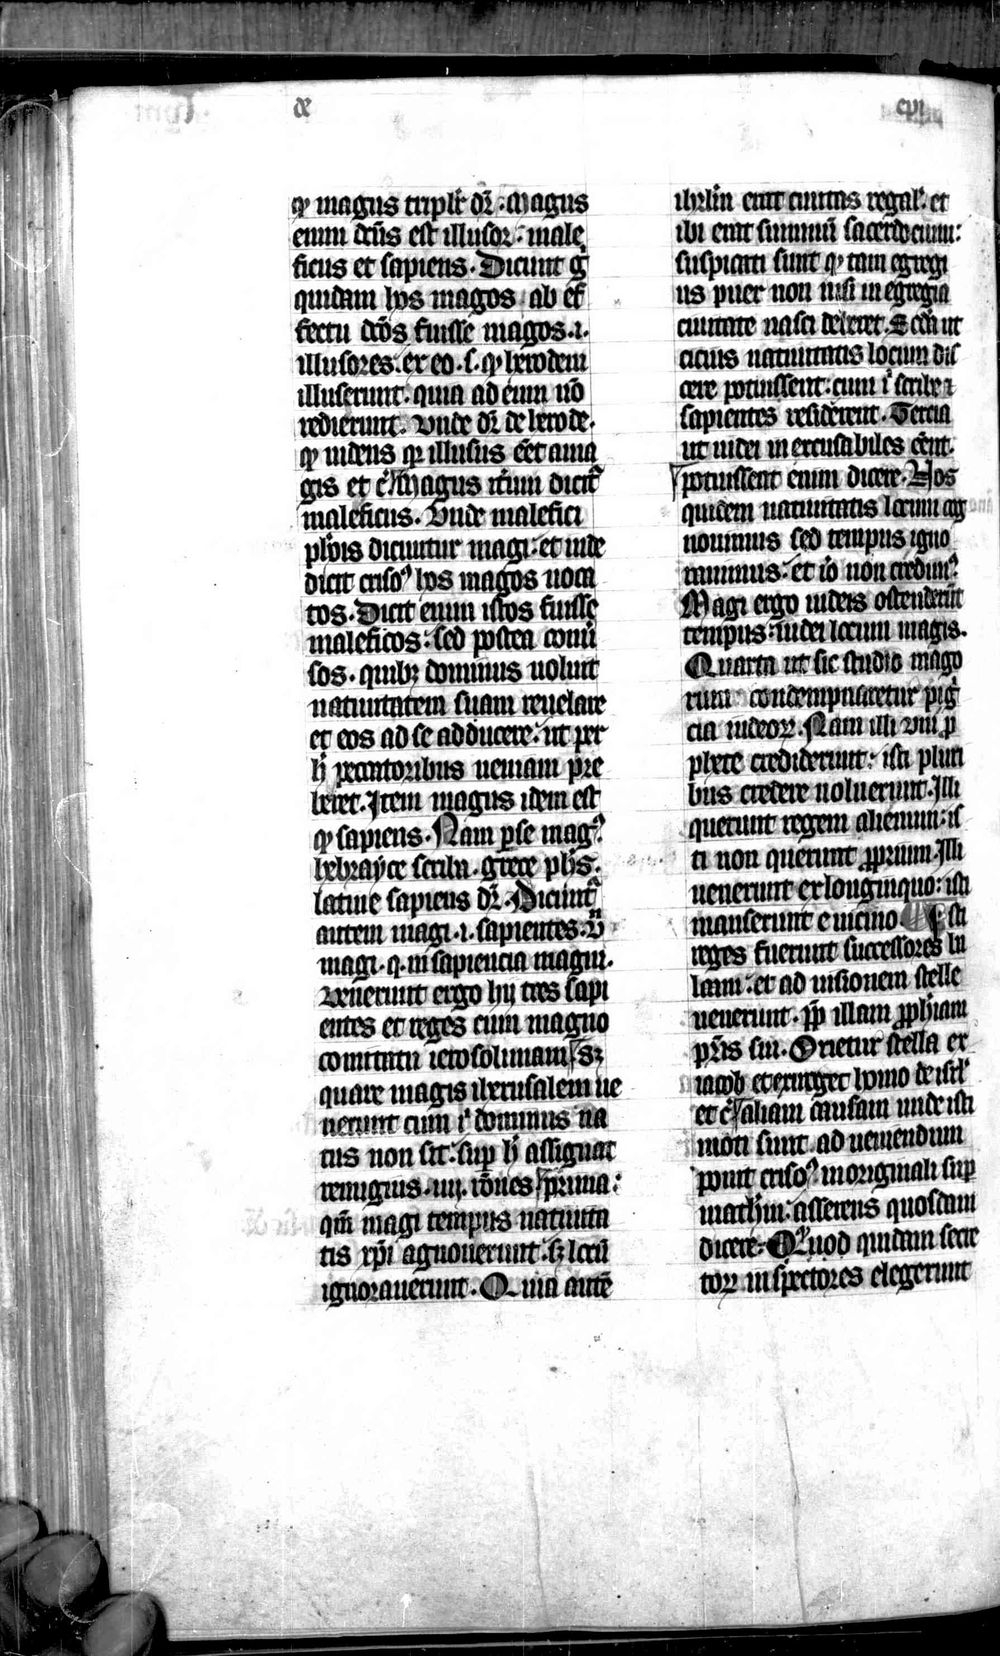 de
cpi
ꝙ magus triplr̄ dr̄. Magus
enim dc̄us est illusor. male
ficus et sapiens. Dicunt gͦ
quidam hos magos ab ef
fectu dc̄os fuisse magos .i.
illusores. ex eo .s. ꝙ herodem
illuserunt. quia ad eum nō
redierunt. Unde dr̄ de herode.
ꝙ uidens qr illusus eēt a ma
gis et cͣ. Magus itm̄ dicitᷣ
maleficus. Unde malefici
pharaonis dicuntur magi. et inde
dicit crisoꝰ hos magos uoca
tos. Dicit enim istos fuisse
maleficos: sed postea conuͥ
sos. quibꝫ dominus uoluit
natiuitatem suam reuelare
et eos ad se adducere. ut per
hͦ peccatoribus ueniam pre
beret. Item magus idem est
ꝙ sapiens. Nam perse magꝰ
hebrayce scriba. grece phs.
latine sapiens dr̄. Dicuntᷣ
autem magi .i. sapientes. Un̄
magi .q. in sapiencia magni.
Uenerunt ergo hii tres sapi
entes et reges cum magno
comitatu ierosolimam Sꝫ
quare magis iherusalem ue
nerunt cum iͥ dominus na
tus non sit. sup hͦ assignat
remigius .iiij. rōnes prima:
qm̄ magi tempus natiuita
tis xp̄i agnouerunt. sꝫ locū
ignorauerunt. Quia autē
ihrlm̄ erat ciuitas regal' et
ibi erat summū sacerdocium:
suspicati sunt ꝙ tam egregi
us puer non nisi in egregia
ciuitate nasci deberet. Scd̄a ut
cicius natiuitatis locum dis
cere potuissent: cum iͥ scribe ⁊
sapientes residerent. Tercia
ut iudei inexcusabiles eēnt.
potuissent enim dicere. Nos
quidem natiuitatis locum cog
nouimus sed tempus igno
ramus: et iō non credimꝰ.
Magi ergo iudeis ostenderūt
tempus: iudei locum magis.
Quarta ut sic studio mago
rum condempnaretur pigͥ
cia iudeoꝝ. Nam illi uni ꝓ
phete crediderunt: isti pluri
bus credere noluerunt. Illi
querunt regem alienum: is
ti non querunt ꝓprium. Illi
uenerunt ex longinquo: isti
manserunt e uicino. Isti
reges fuerunt successores ba
laam. et ad uisionem stelle
uenerunt. ꝓp̄ illam ꝓph̄iam
pr̄is sui. Orietur stella ex
iacob et exurget homo de isrl'
et cͣ aliam causam unde isti
moti sunt ad ueniendum
ponit crisoꝰ in originali sup
math'm: asserens quosdam
dicere. Quod quidam secre
toꝝ inspectores elegerunt